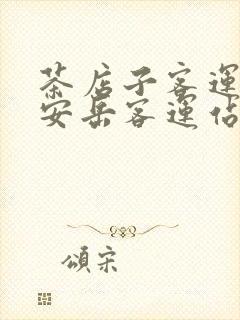 茶店子客運
安岳客運佔
頌宋